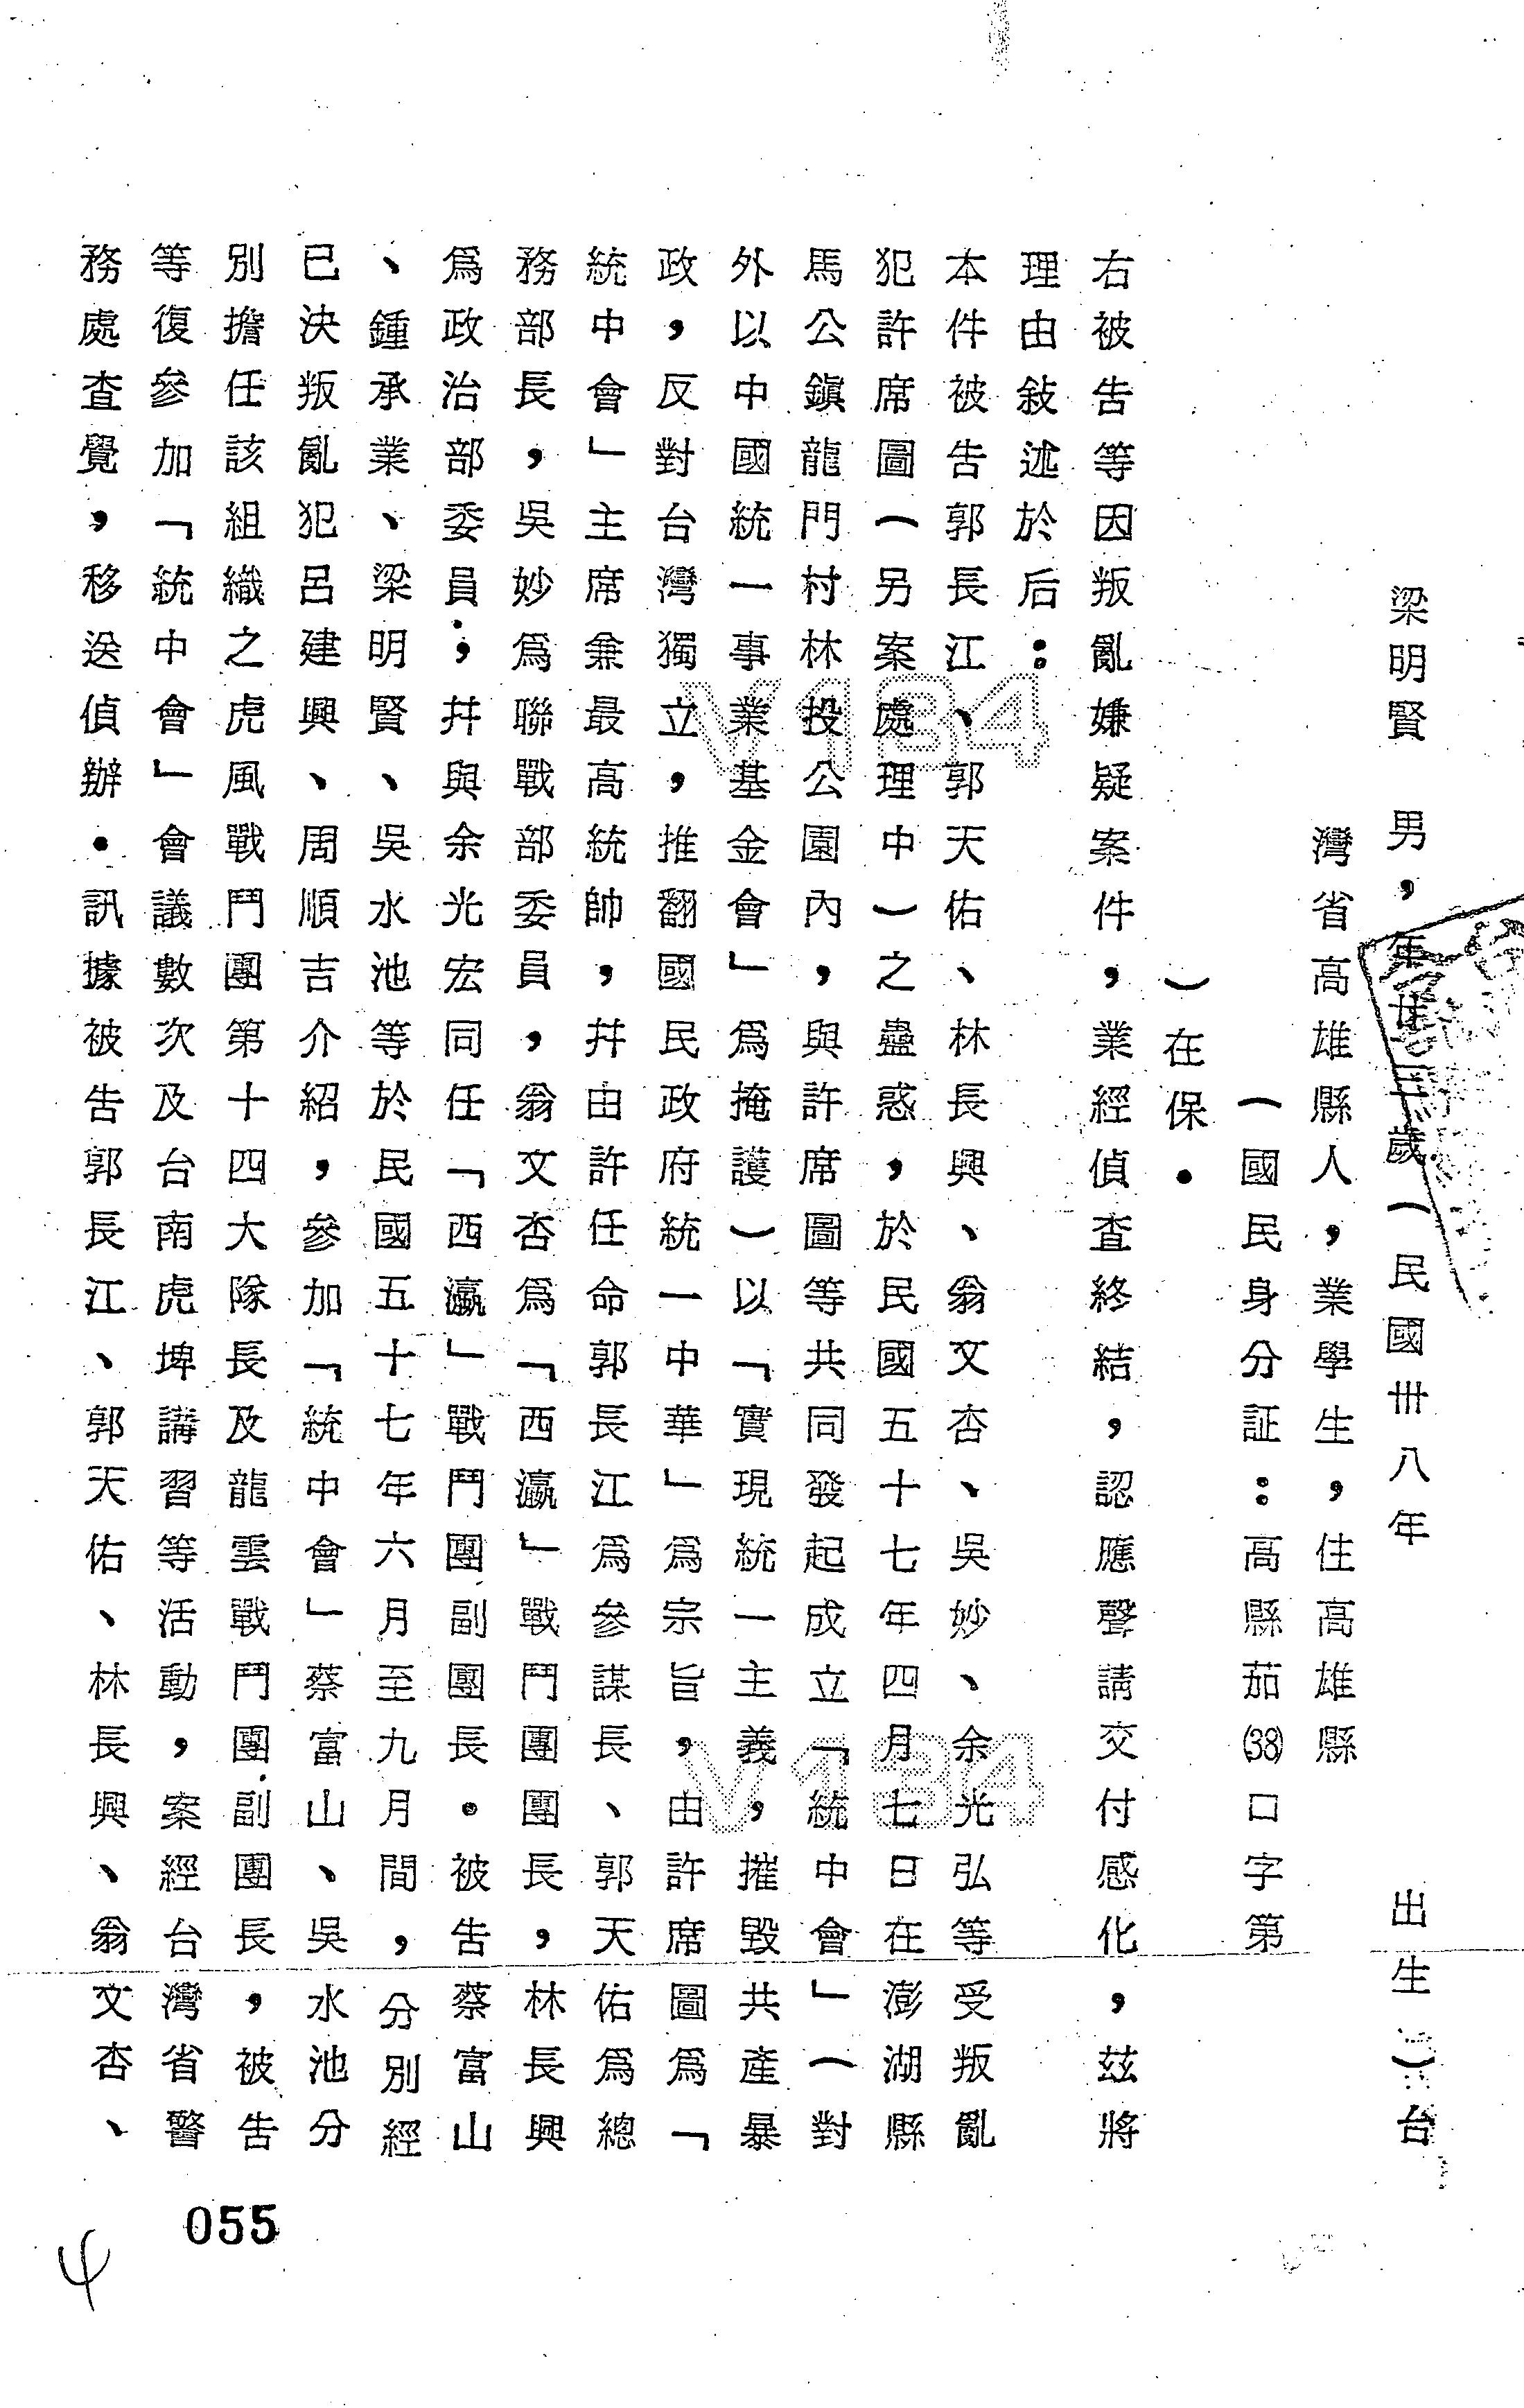 梁明賢　男，年廿三歲（民國卅八年　　出生）台
灣省高雄縣人，業學生，住高雄縣
（國民身分証：高縣茄(38)口字第
）在保．
右被告等因叛亂嫌疑案件，業經偵查終結，認應聲請交付感化，茲將
理由敍述於后：
本件被告郭長江、郭天佑、林長興、翁文杏、吳妙、余光弘等受叛亂
犯許席圖（另案處理中）之蠱惑，於民國五十七年四月七日在澎湖縣
馬公鎮龍門村林投公園內，與許席圖等共同發起成立「統中會」（對
外以中國統一事業基金會」為掩護）以「實現統一主義，摧毀共產暴
政，反對台灣獨立，推翻國民政府統一中華」為宗旨，由許席圖為「
統中會」主席兼最高統帥，幷由許任命郭長江為參謀長、郭天佑為總
務部長，吳妙為聯戰部委員，翁文杏為「西瀛」戰鬥團團長，林長興
為政治部委員；幷與余光宏同任「西瀛」戰鬥團副團長。被告蔡富山
、鍾承業、梁明賢、吳水池等於民國五十七年六月至九月間，分別經
已決叛亂犯呂建興、周順吉介紹，參加「統中會」蔡富山、吳水池分
別擔任該組織之虎風戰鬥團第十四大隊長及龍雲戰鬥團副團長，被告
等復參加「統中會」會議數次及台南虎埤講習等活動，案經台灣省警
務處查覺，移送偵辦．訊據被告郭長江、郭天佑、林長興、翁文杏、
055
4
V134
V134